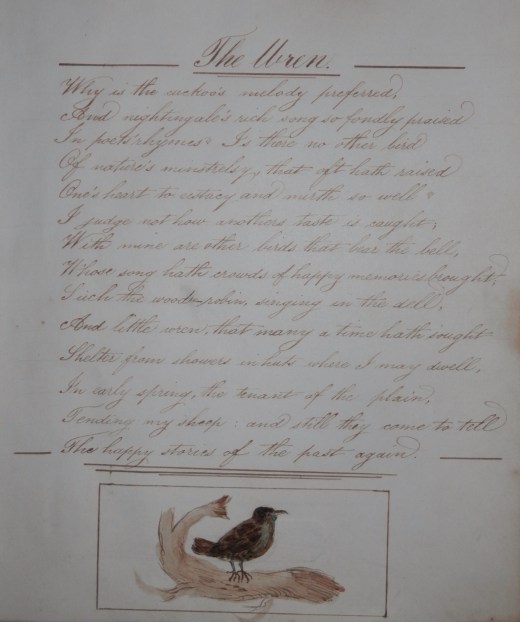 The Wren.
Why is the cuckoo's melody preferred,
And nightingale's rich song so fondly praised
In poets rhymes? Is there no other bird
Of nature's minstrelsy, that oft hath raised
One's heart to ecstacy and mirth so well?
I judge not how anothers taste is caught;
With mine are other birds that bear the bell,
Whose song hath crowds of happy memories brought;
Such the wood robin, singing in the dell,
And little wren, that many a time hath sought
Shelter from showers in huts where I may dwell,
In early spring, the tenant of the plain,
Tending my sheep: and still they come to tell
The happy stories of the past again.